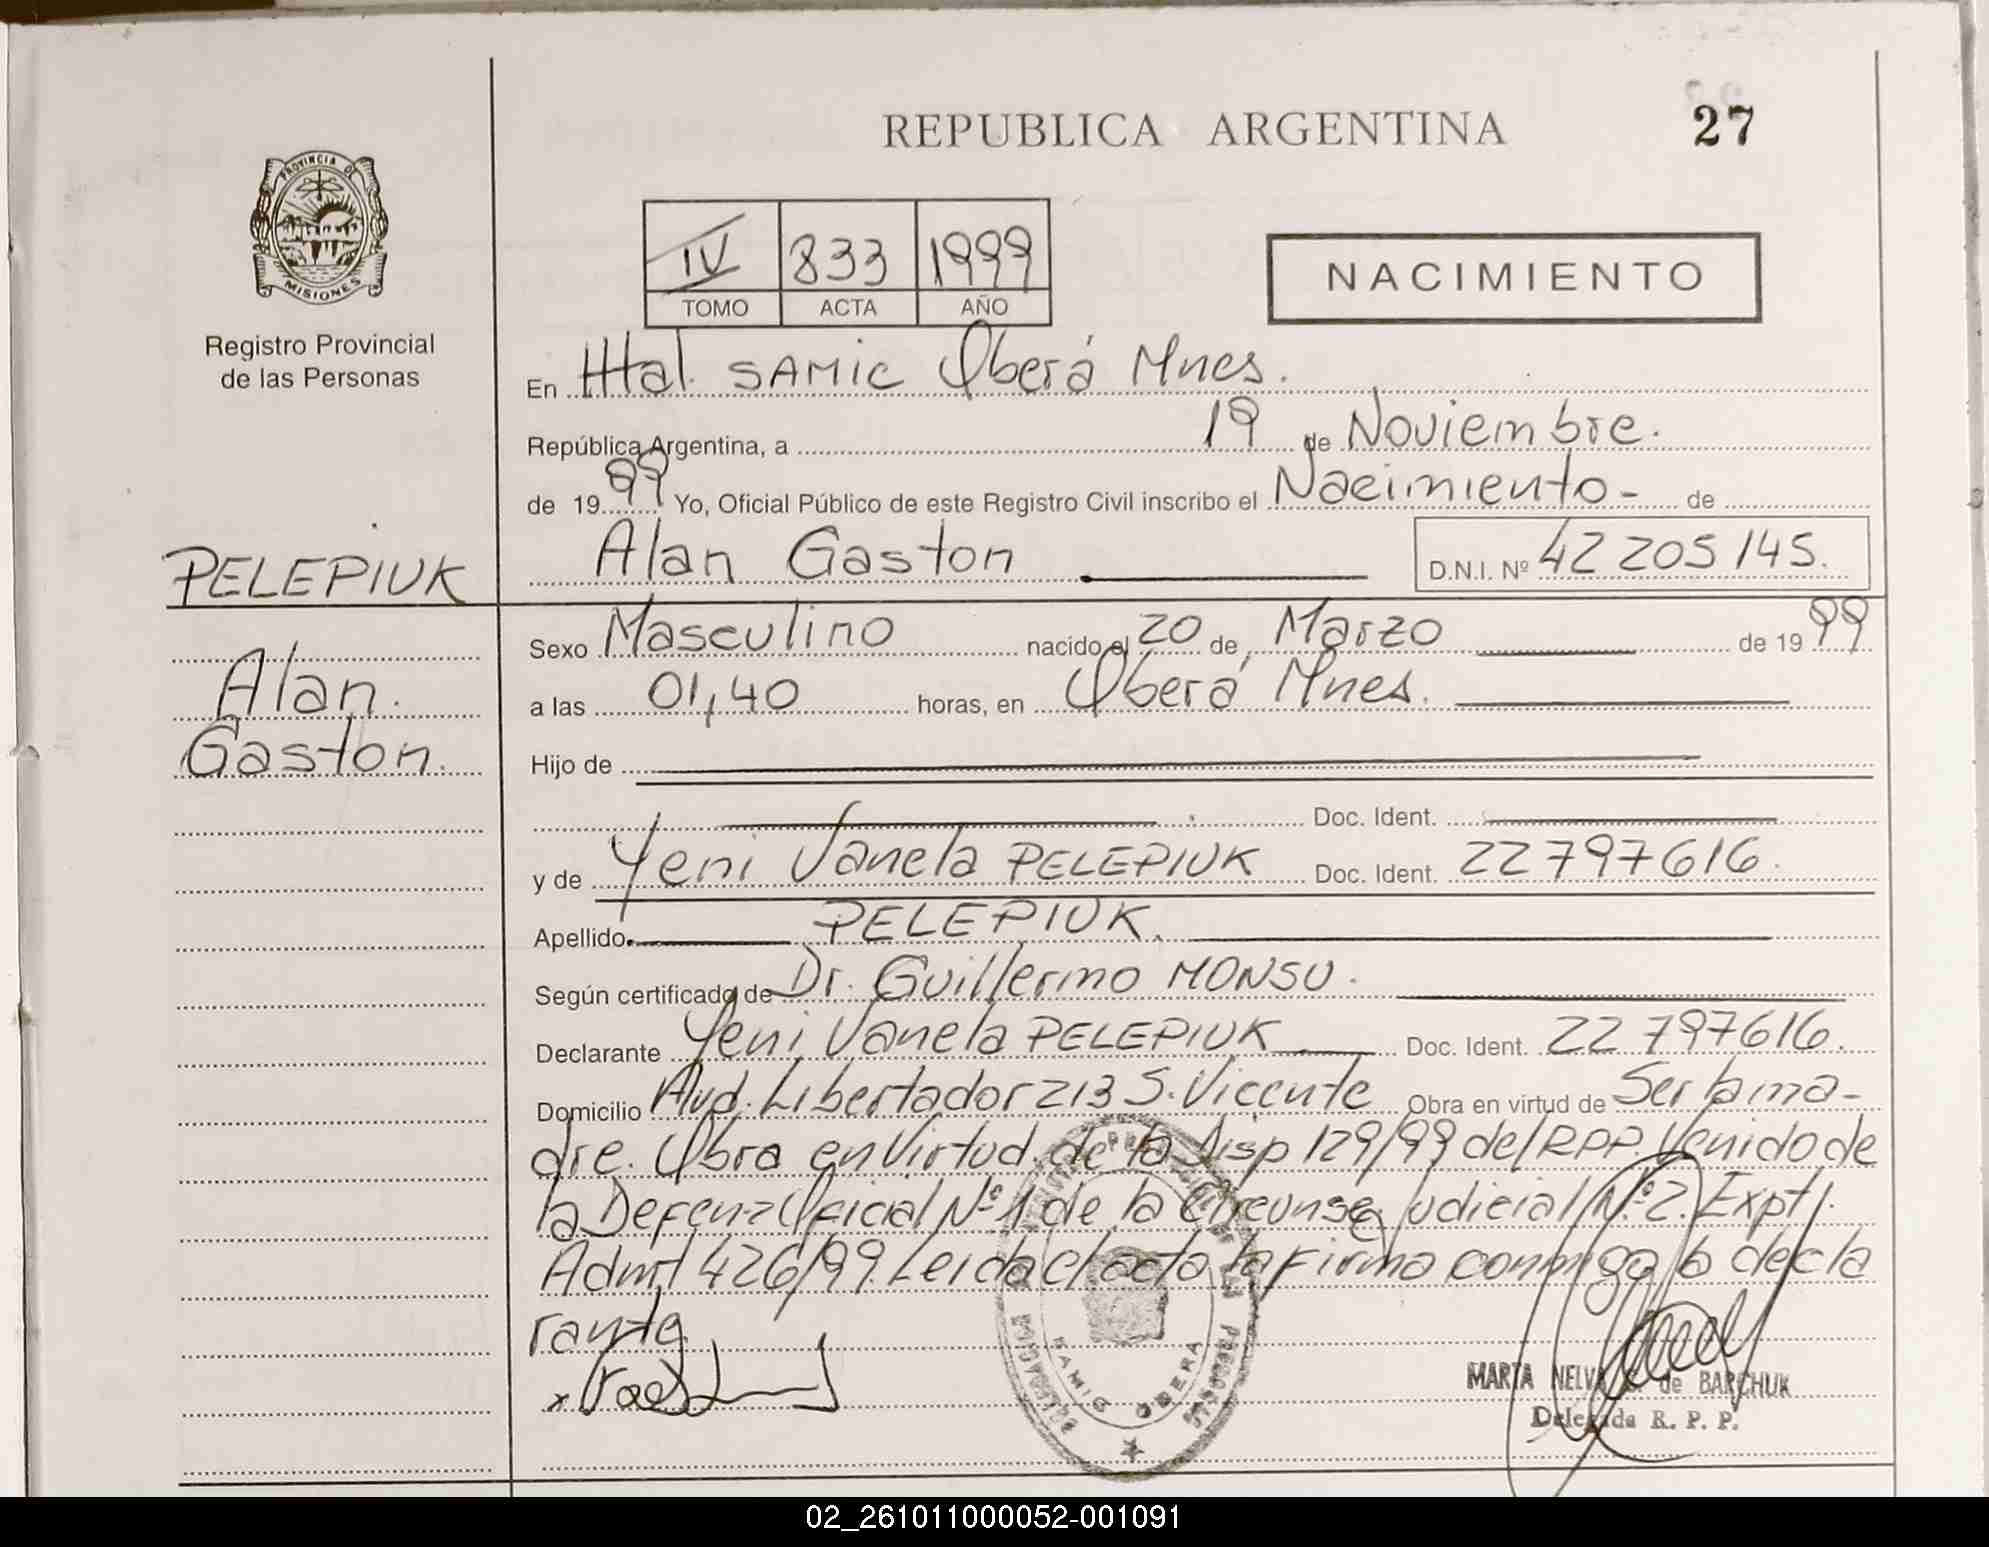 REPUBLICA ARGENTINA
27
PROVINCIA DE
MISIONES
Registro Provincial
de las Personas
IV 833 1999
TOMO ACTA AÑO
NACIMIENTO
En Htal. SAMIC Oberá Mnes.
República Argentina, a 19 de Noviembre.
de 1999 Yo, Oficial Público de este Registro Civil inscribo el Nacimiento - de
Alan Gaston D.N.I. Nº 42 205 145.
PELEPIUK
Alan.
Gaston.
Sexo Masculino nacido el 20 de Marzo de 1999
a las 01,40 horas, en Oberá Mnes.
Hijo de
Doc. Ident.
y de Yeni Vanela PELEPIUK Doc. Ident. 22797616.
Apellido PELEPIUK.
Según certificado de Dr. Guillermo MONSU.
Declarante Yeni Vanela PELEPIUK Doc. Ident. 22 797616.
Domicilio Avd. Libertador 213 S. Vicente Obra en virtud de Ser la ma-
dre. Obra en Virtud de la Disp 129/99 del R.P.P. Venido de
la Defenz Oficial Nº 1 de la Circunsc Judicial Nº 2. Expt.
Admt 426/99. Leida el acta la Firma conmigo la decla
rante
SAMIC OBERA
MARTA NELVA de BARCHUK
Delegada R. P. P.
02_261011000052-001091